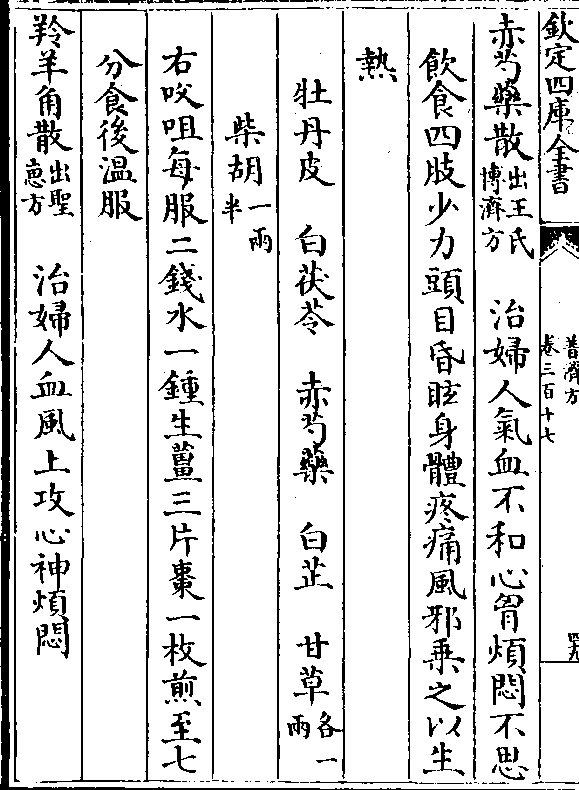 欽定四庫全書
普濟方
卷三百十七
四九
赤芍藥散出王氏博濟方 治婦人氣血不和心胷煩悶不思
飲食四肢少力頭目昏眩身體疼痛風邪乗之以生
熱
牡丹皮 白茯苓 赤芍藥 白芷 甘草各一兩
柴胡一兩半
右㕮咀每服二錢水一鍾生薑三片棗一枚煎至七
分食後温服
羚羊角散出聖惠方 治婦人血風上攻心神煩悶